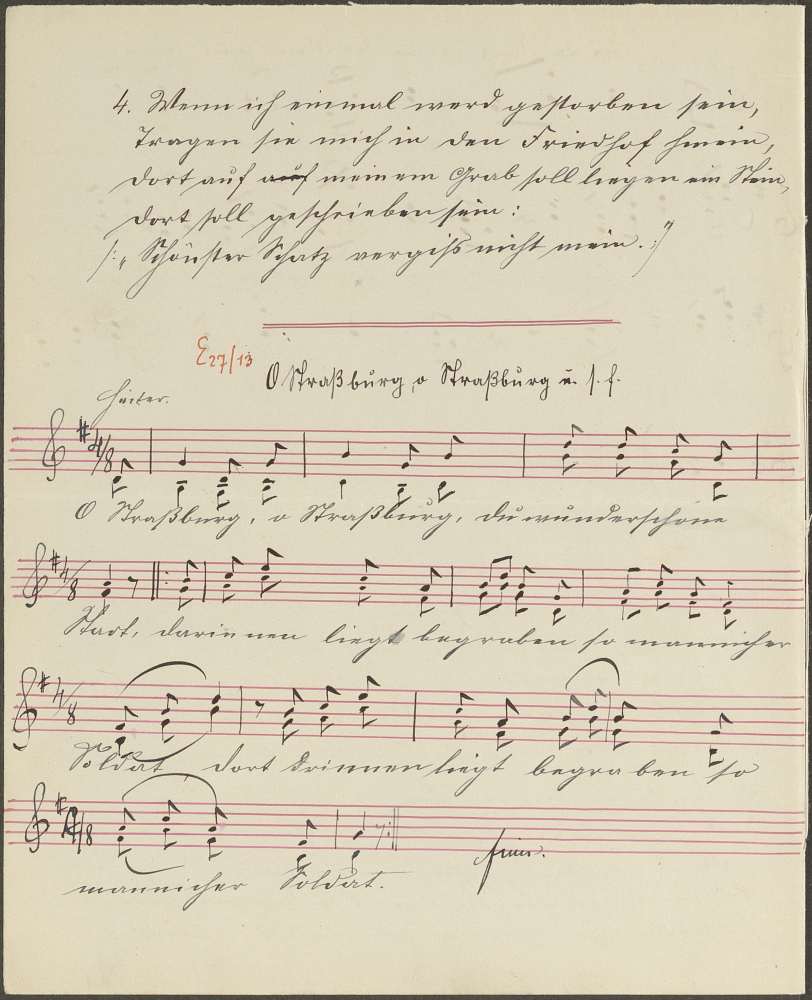 4. Wenn ich einmal werd gestorben sein,
Tragen sie mich in den Friedhof hinein,
dort auf auf meinem Grab soll liegen ein Stein,
dort soll geschrieben sein:
/: „Schönster Schatz vergiß nicht mein. :/"
E 27/13
O Straßburg, o Straßburg u. s. f.
Heiter.
4/8
O Straßburg, o Straßburg, du wunderschöne
4/8
Stadt, darinnen liegt begraben so mannicher
4/8
Soldat, dort drinnen liegt begraben so
4/8
mannicher Soldat.